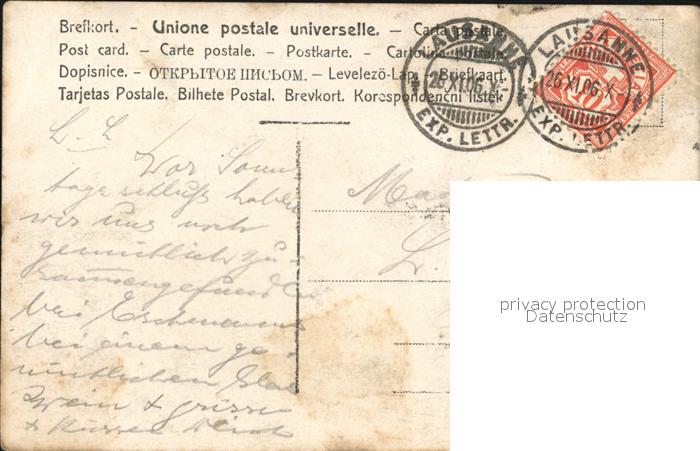 Brefkort. - Unione postale universelle. — Carta postale.
Post card. - Carte postale. - Postkarte. - Cartolina postale.
Dopisnice. - ОТКРЫТОЕ ПИСЬОМ. — Levelező-Lap. - Briefkaart.
Tarjetas Postale. Bilhete Postal. Brevkort. Korespondenční listek
LAUSANNE
26.XI.06.X-
EXP. LETTR.
LAUSANNE
26.XI.06.X-
EXP. LETTR.
L. L. Vor Sonn
tagsschluss haben
wir uns noch
gemütlich zu-
sammengefunden
bei Eschmanns
bei einem ge-
mütlichen Glas
Wein & grüsse
& Küsse
L.
privacy protection
Datenschutz